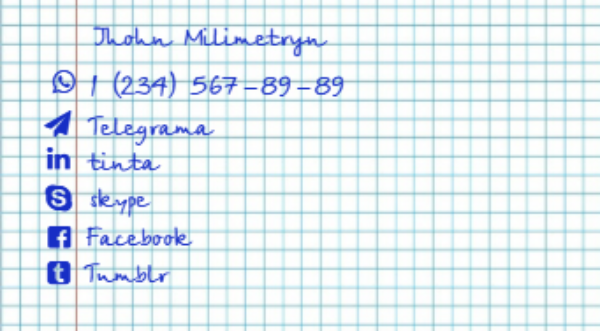 Jhohn Milimetryn
1 (234) 567-89-89
Telegrama
tinta
skype
Facebook
Tumblr